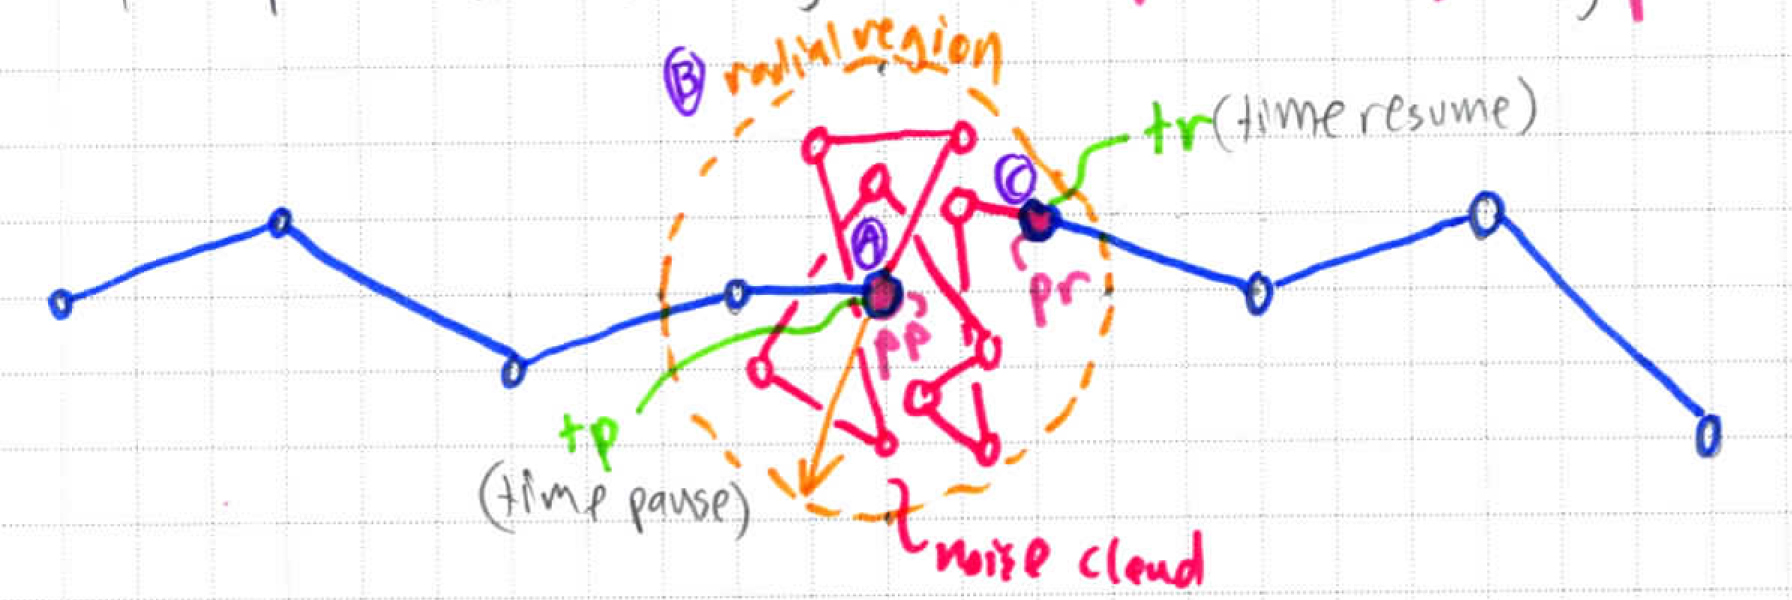 B radial region
tr (time resume)
C
A
pr
pp
tp
(time pause)
noise cloud